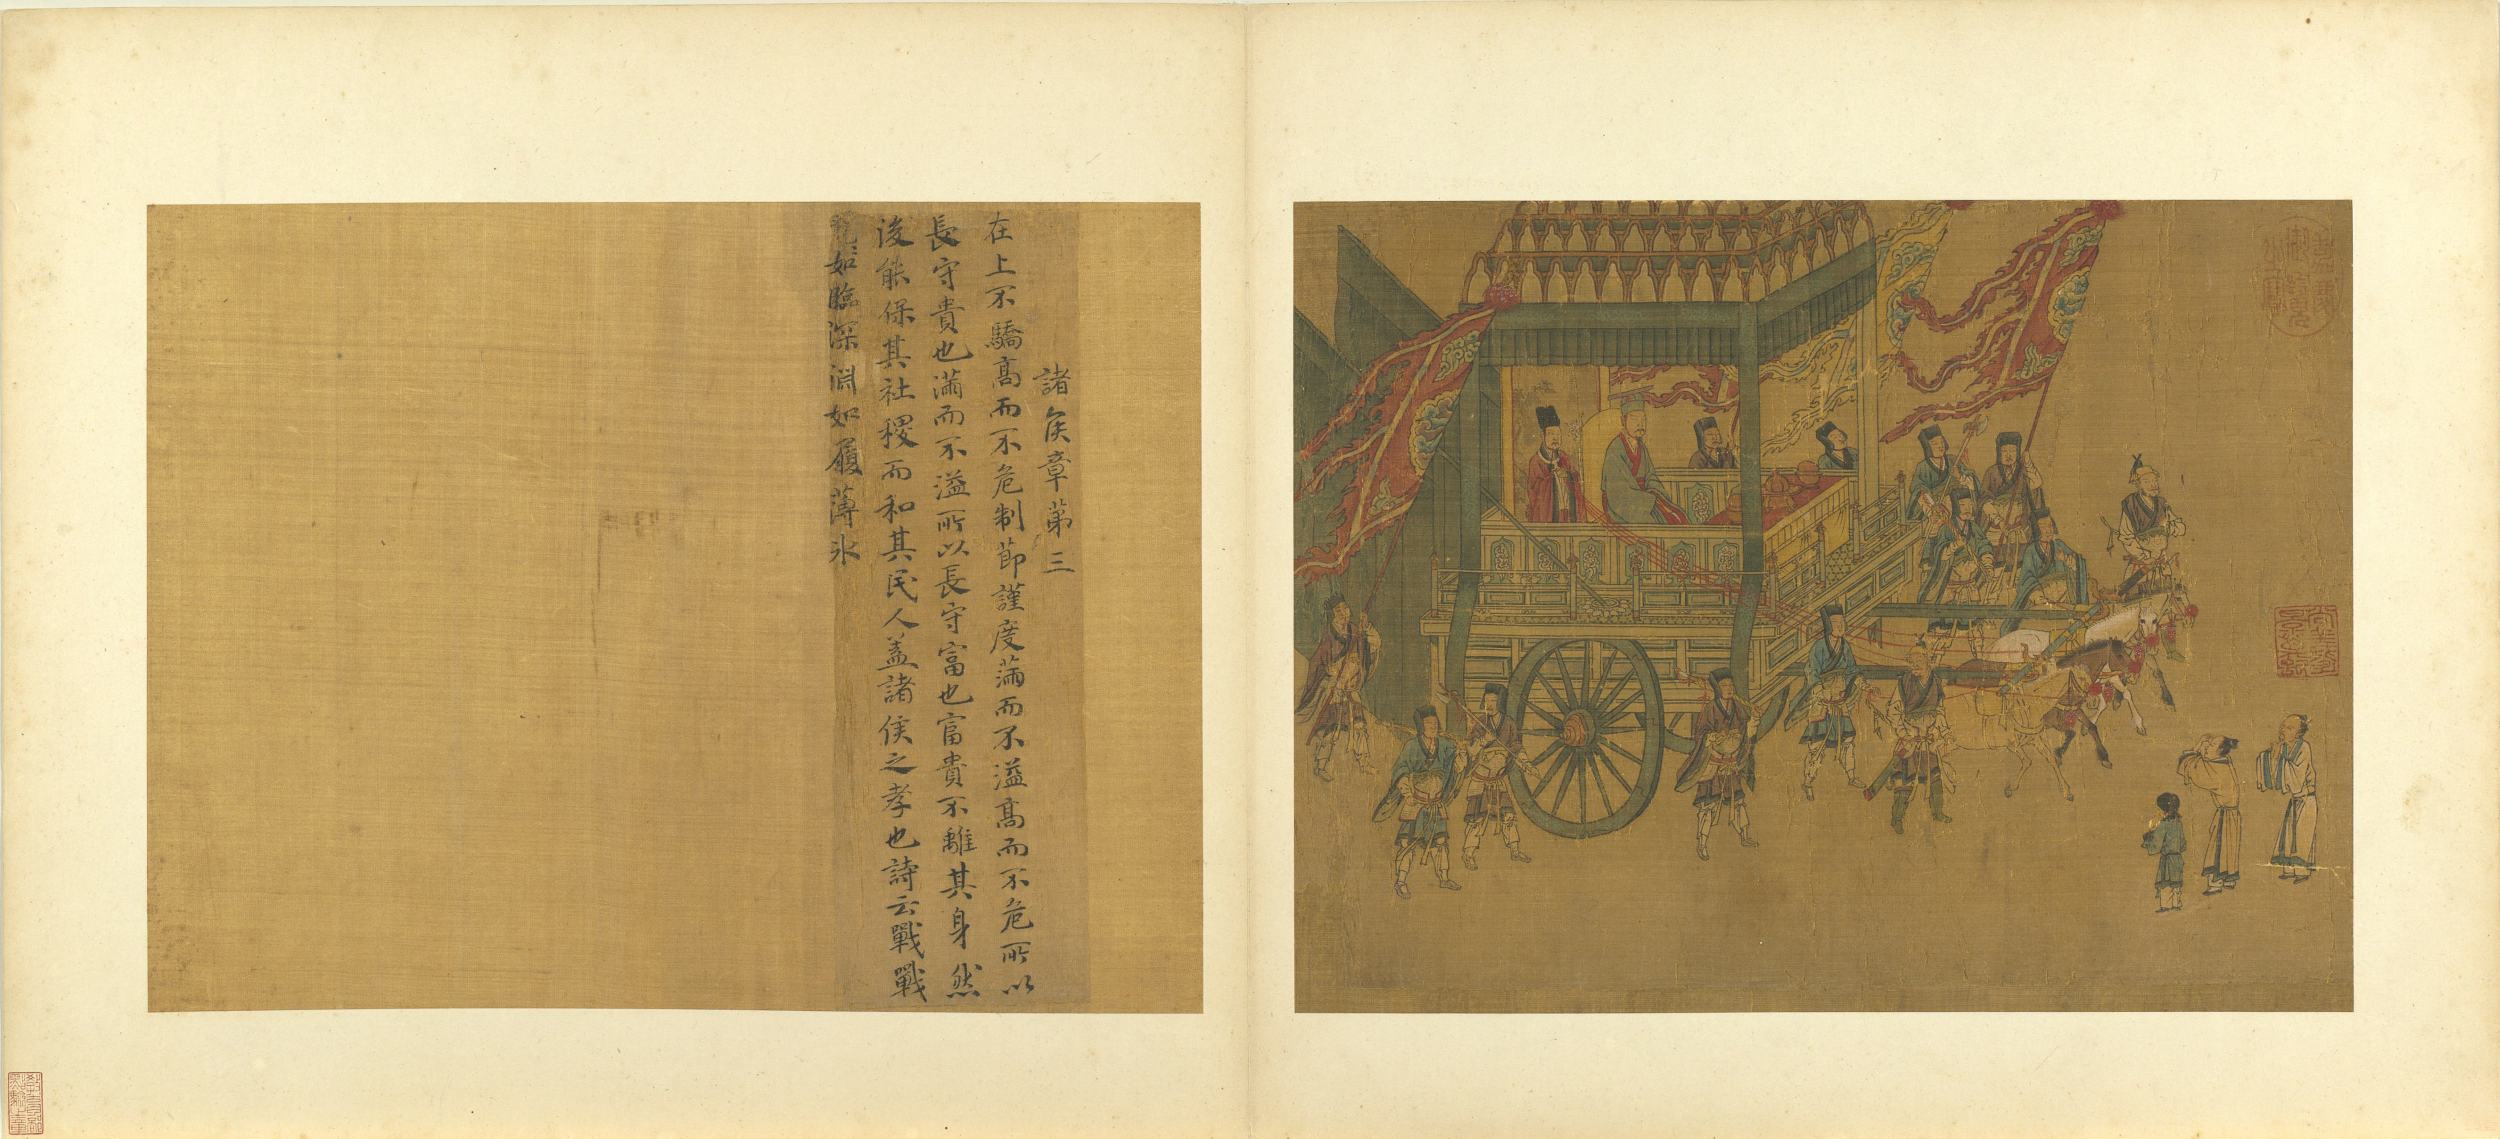 諸侯章第三
在上不驕高而不危制節謹度滿而不溢高而不危所以
長守貴也滿而不溢所以長守富也富貴不離其身然
後能保其社稷而和其民人蓋諸侯之孝也詩云戰戰
兢兢如臨深淵如履薄冰
嘉慶御覽之寶